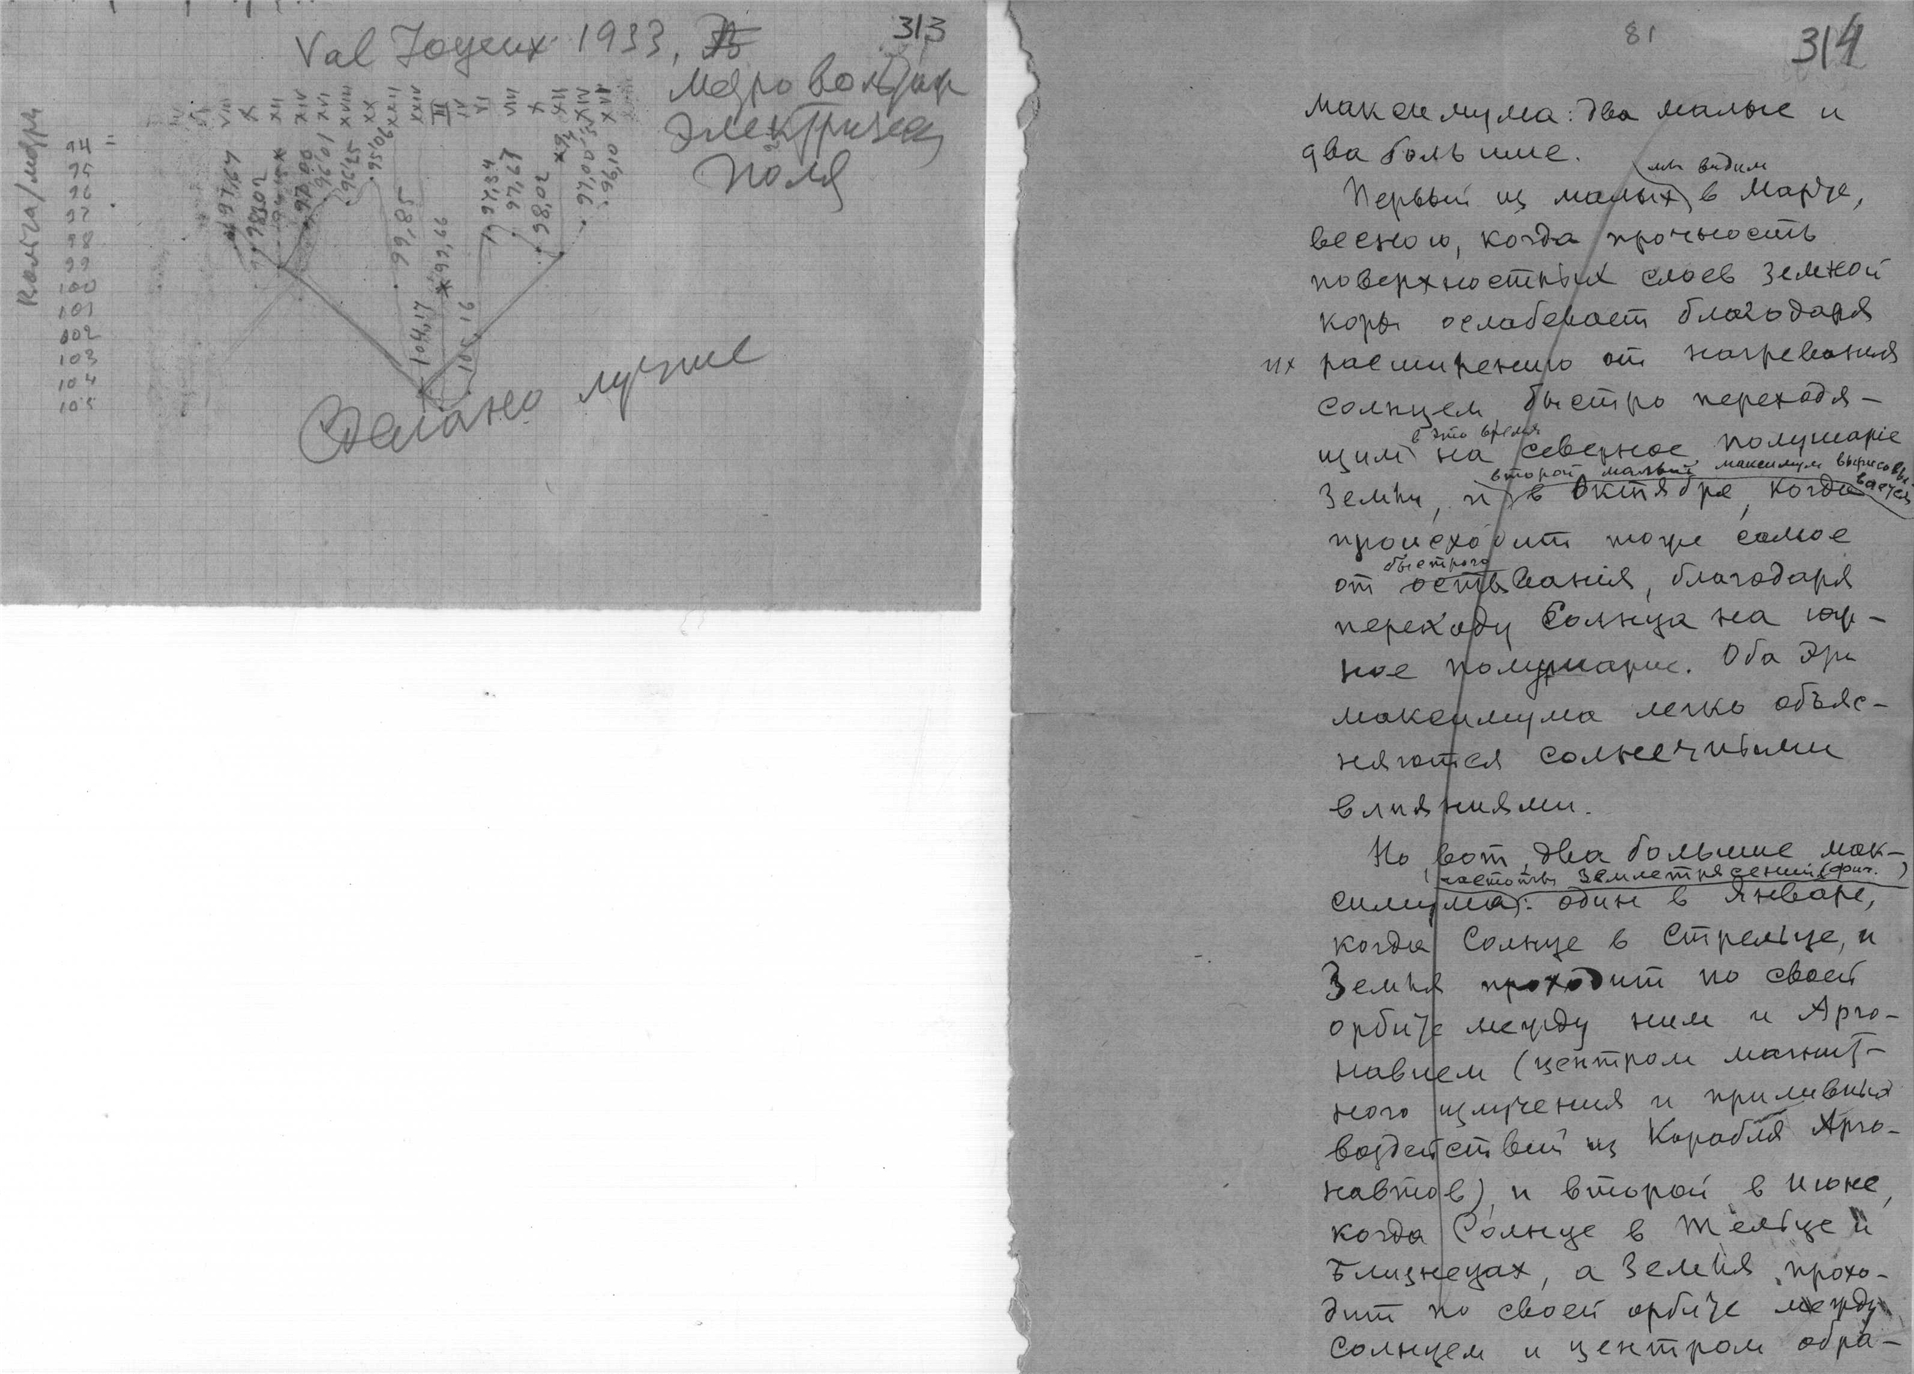 313
Val Joyeux 1933,
Метро вольтаж
электрическ
поля
Вольта/метр
94
95
96
97
98
99
100
101
102
103
104
105
97,67
98,02
96,25
95,06
99,85
104,17
99,66
105,16
97,34
97,79
98,02
97,00
96,10
Сделано лучше
81
314
максимума: два малые и
два больше.
мы видим
Первый из малых, в Марте,
весною, когда прочность
поверхностных слоев земной
коры ослабевает благодаря
их расширению от нагревания
солнцем, быстро переходя-
в это время
щим на северное полушарiе
второй малый максимум вырисовы-
вается
Земли, и в Октябре, когда
происходит тоже самое
быстрого
от остыванiя, благодаря
переходу Солнца на юж-
ное полушарие. Оба эти
максимума легко объяс-
няются солнечными
влияниями.
Но вот два больше мак-
(частоты землетрясений (фиг. )
симума: один в Январе,
когда Солнце в Стрельце, и
Земля проходит по своей
орбите между ним и Арго-
навием (центром магнит-
ного излучения и приливных
воздействий из Корабля Арго-
навтов), и второй в Июне,
когда Солнце в Тельце и
Близнецах, а Земля прохо-
дит по своей орбите между
солнцем и центром обра-